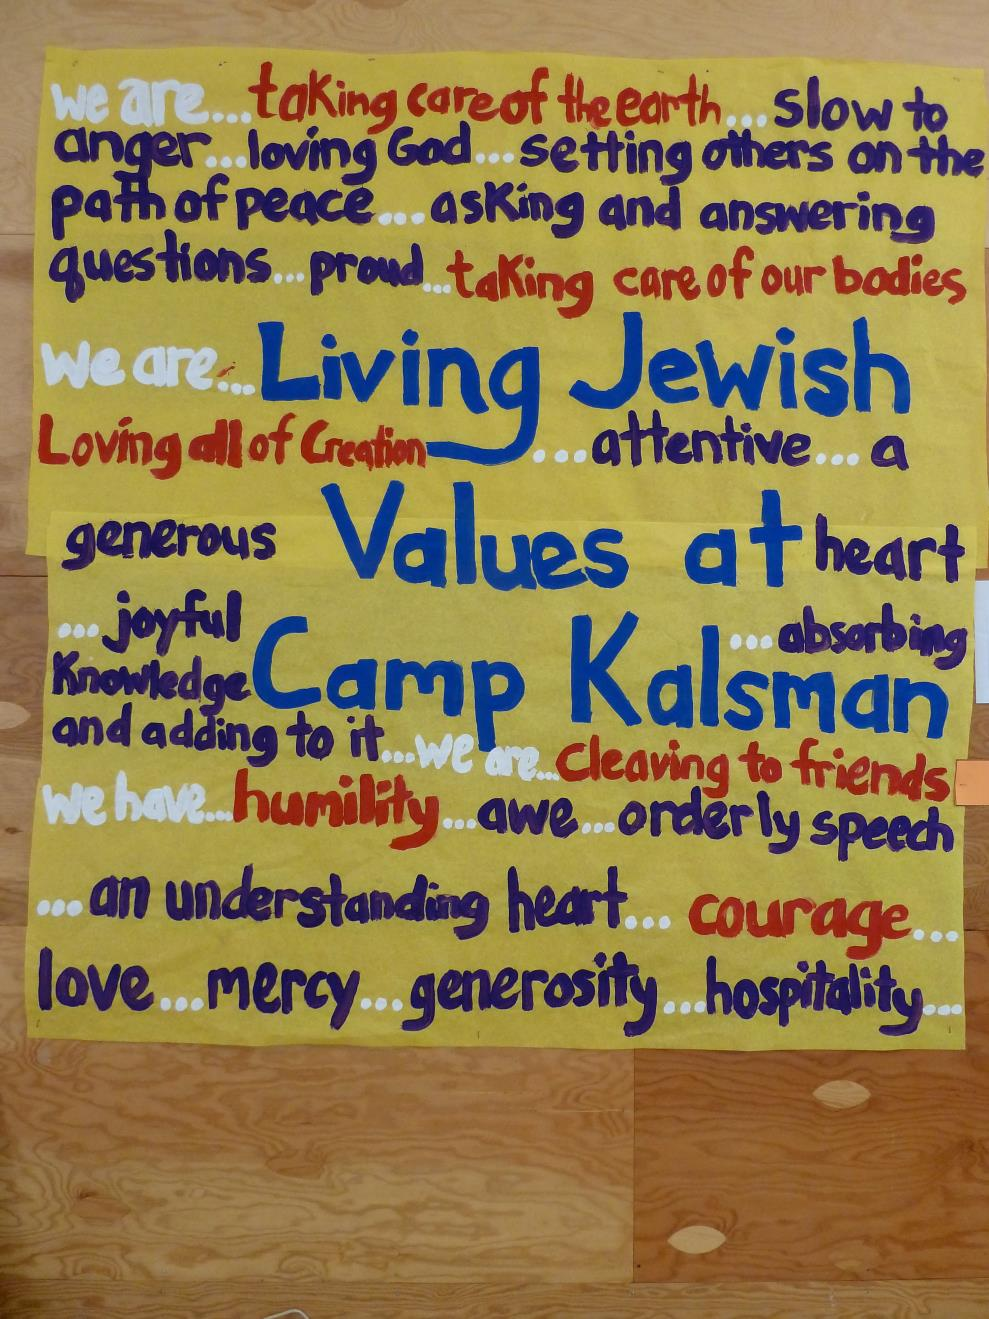 we are...taking care of the earth...slow to
anger...loving God...setting others on the
path of peace...asking and answering
questions...proud...taking care of our bodies
we are...Living Jewish
Loving all of Creation...attentive...a
generous Values at heart
...joyful Camp Kalsman ...absorbing
Knowledge
and adding to it...we are...cleaving to friends
we have...humility...awe...orderly speech
...an understanding heart...courage...
love...mercy...generosity...hospitality...